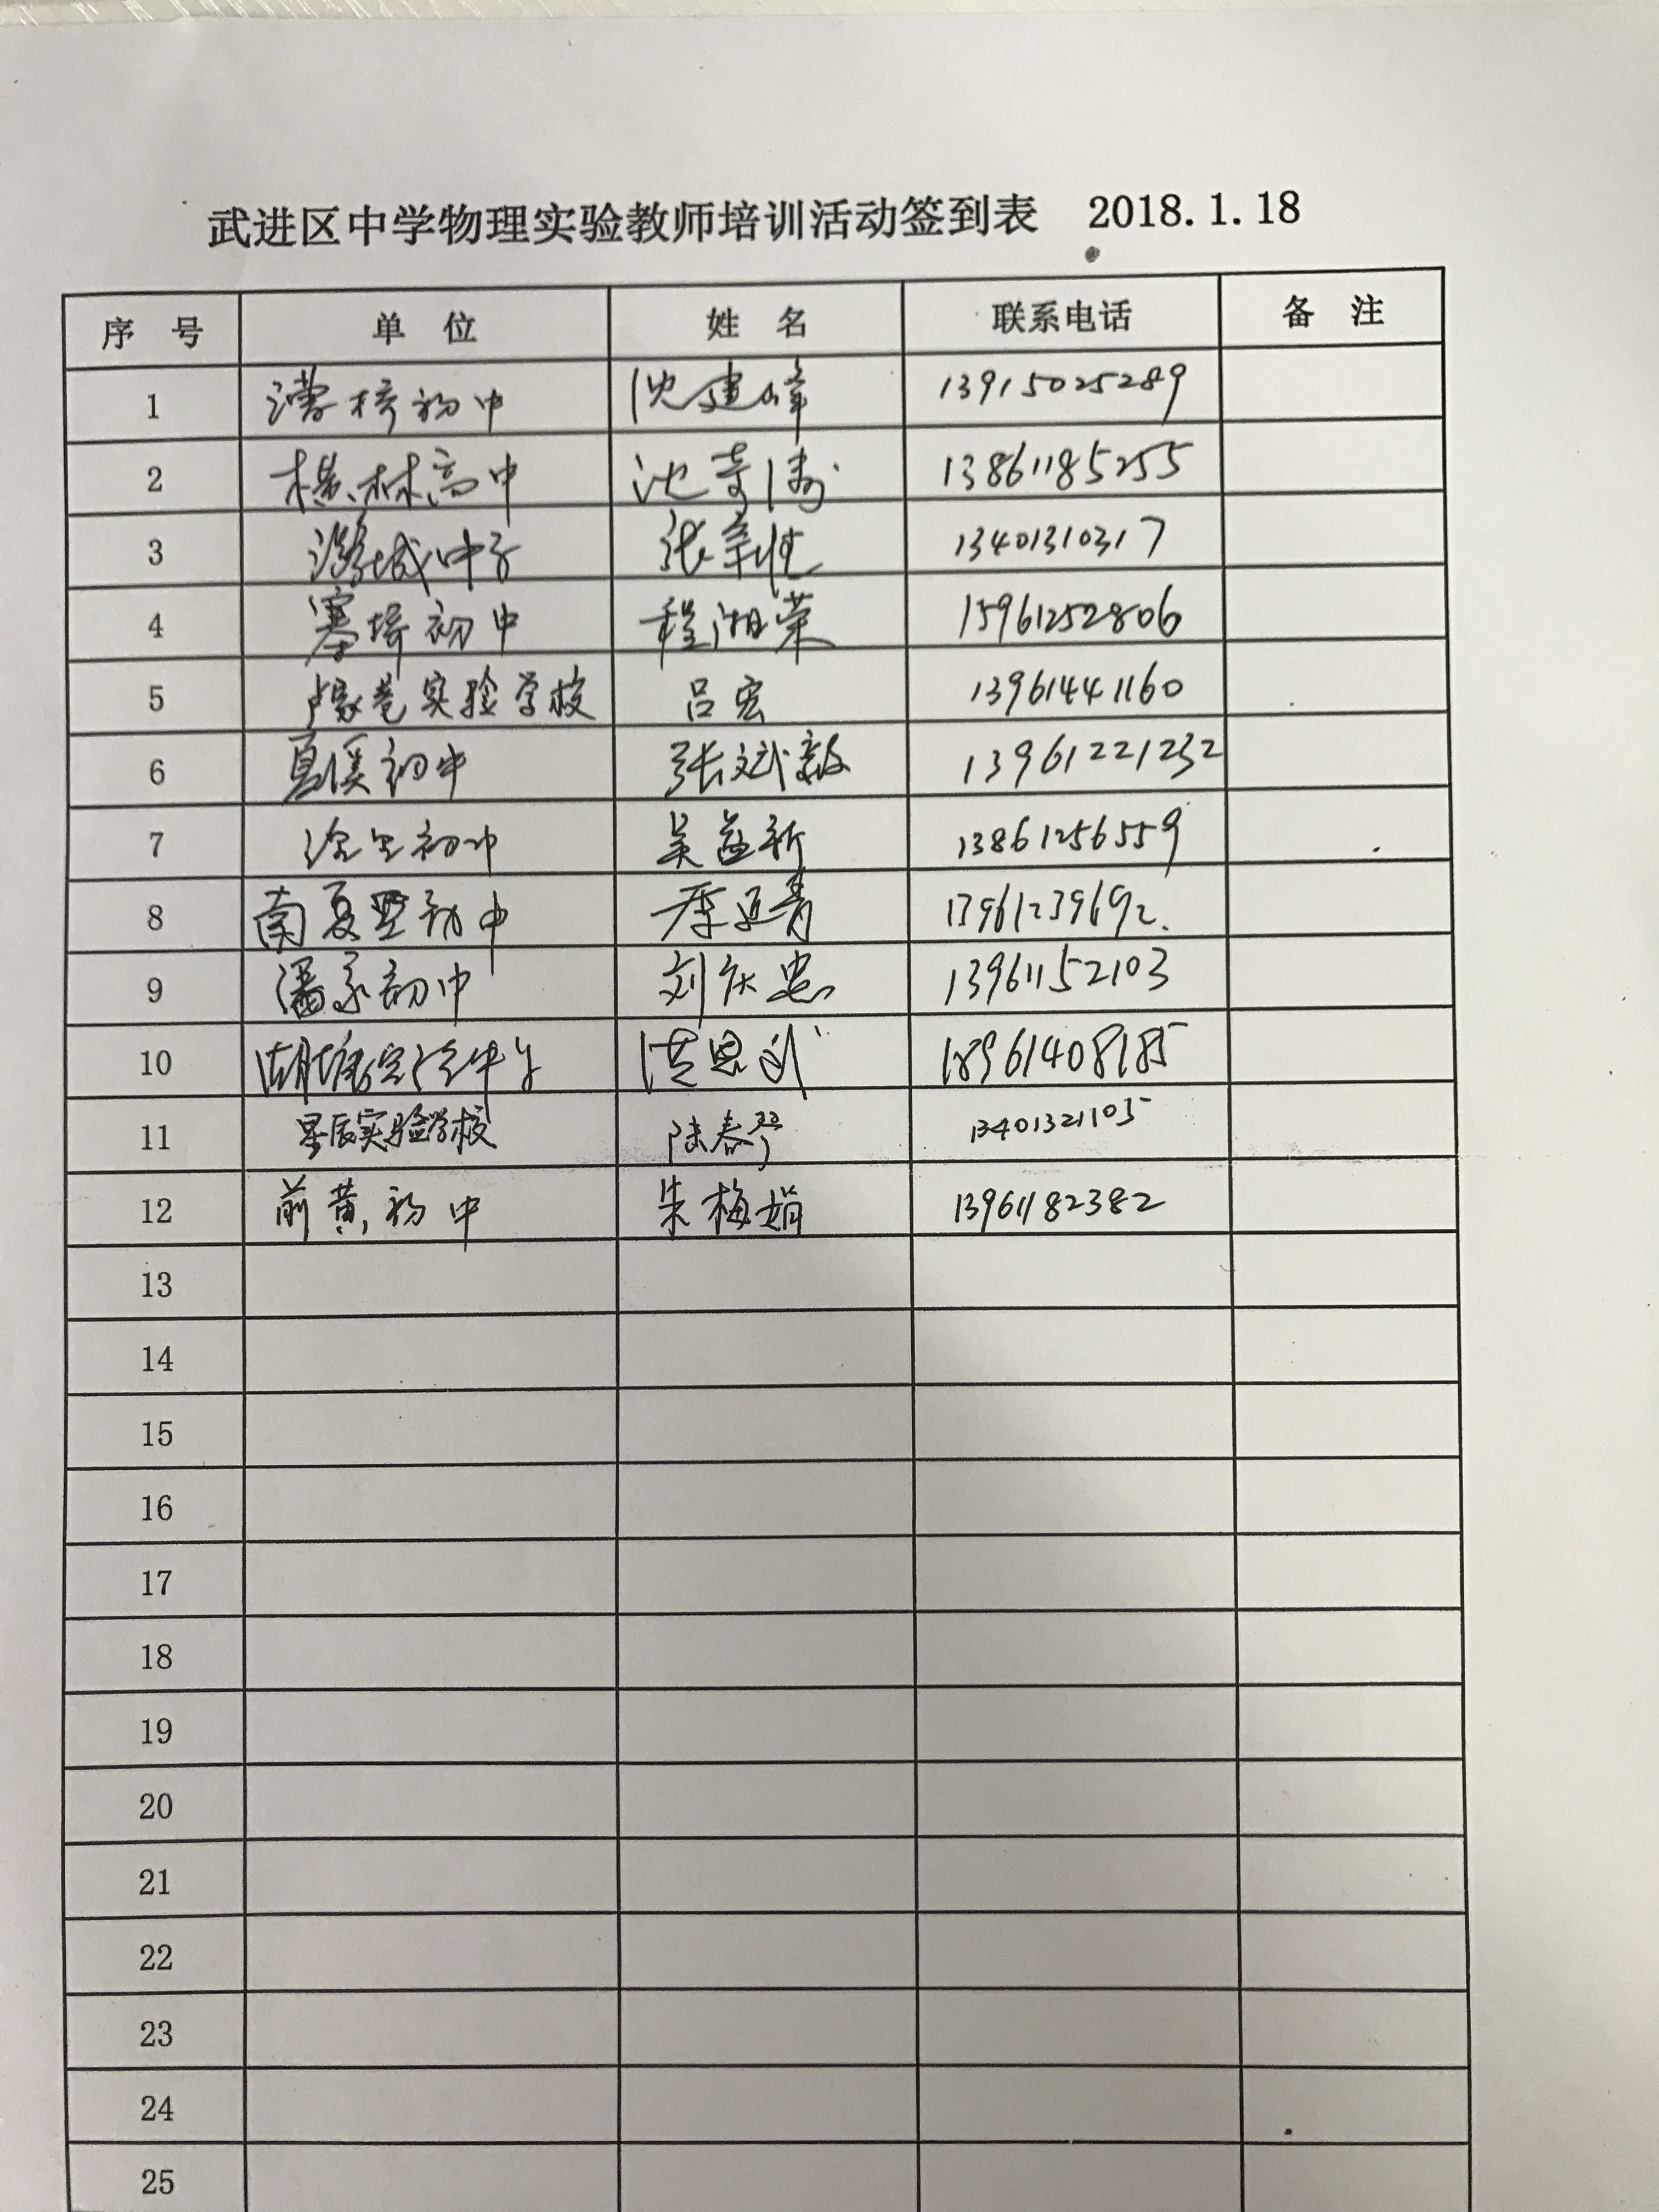 武进区中学物理实验教师培训活动签到表 2018.1.18
序 号 单 位 姓 名 联系电话 备 注
1 漕桥初中 沈建峰 13915025289
2 横林高中 沈奇涛 13861185255
3 潞城中学 张 13401310317
4 寨桥初中 程湘荣 15961252806
5 卢家巷实验学校 吕宏 13961441160
6 夏溪初中 张斌毅 13961221232
7 初中 吴益新 13861256559
8 南夏墅初中 季延青 13961239692.
9 潘家初中 刘庆忠 13961152103
10 湖塘实验中学 洪恩 18961408185
11 星辰实验学校 陆春琴 13401321105
12 前黄初中 朱梅娟 13961182382
13
14
15
16
17
18
19
20
21
22
23
24
25